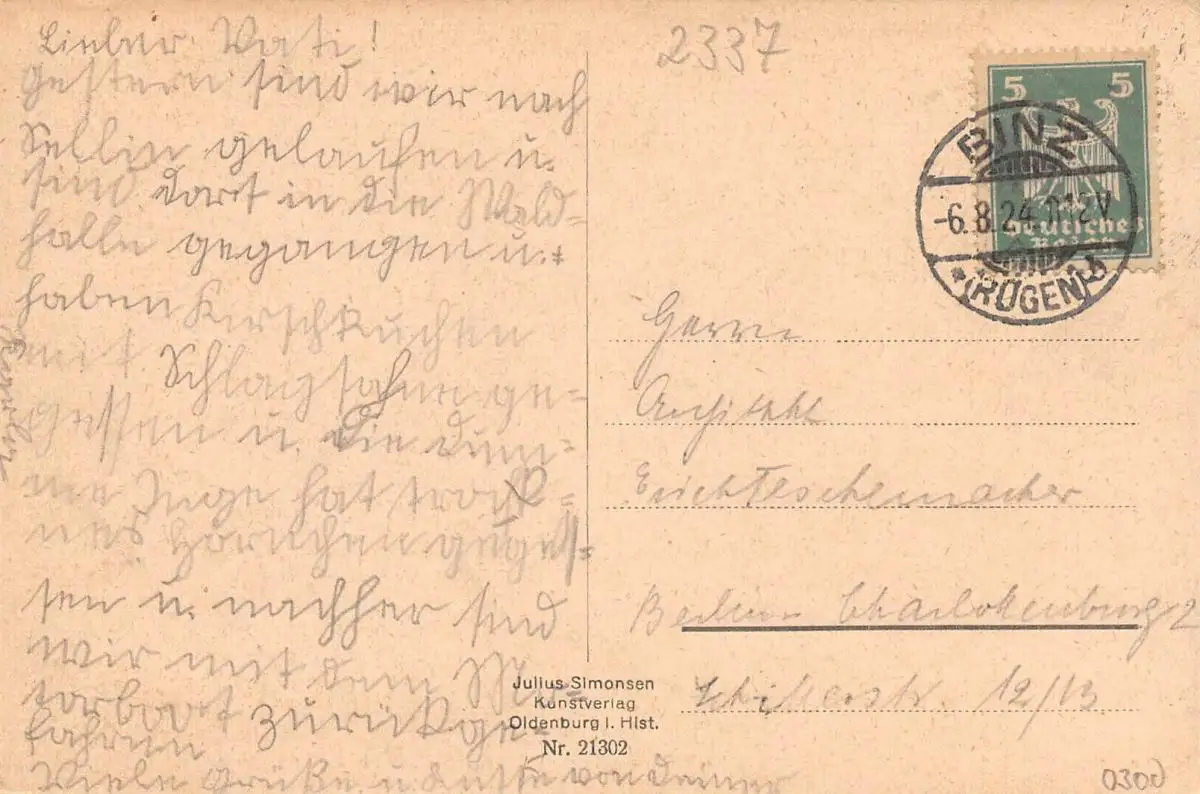 Lieber Vati!
gestern sind wir nach
Sellin gelaufen u.
sind dort in die Wald-
halle gegangen u.
haben Kirschkuchen
mit Schlagsahne ge-
gessen u. die dum-
me Inge hat trock-
nes Hörnchen geges-
sen u. nachher sind
wir mit dem Mo-
torboot zurückge-
fahren
Viele Grüße u. Küsse von Deiner
2337
5 5
Deutsches
Reich
BINZ
-6.8.24. 0-12V.
*(RÜGEN) b
Herrn
Architekt
Erich Teschemacher
Berlin Charlottenburg 2
Schillerstr. 12/13
Julius Simonsen
Kunstverlag
Oldenburg i. Hlst.
Nr. 21302
0300